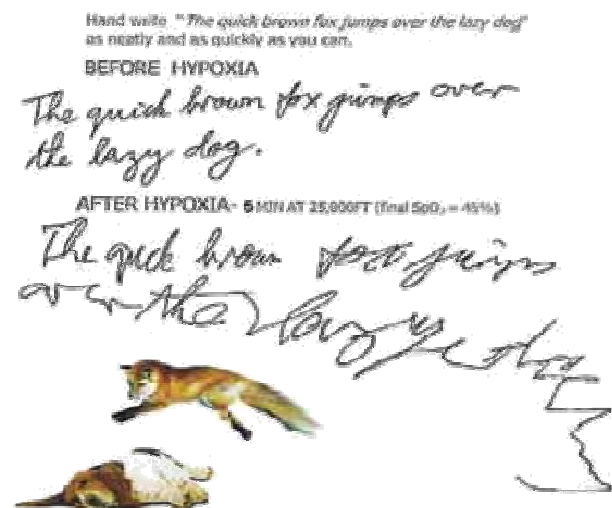 Hand write "The quick brown fox jumps over the lazy dog"
as neatly and as quickly as you can.
BEFORE HYPOXIA
The quick brown fox jumps over
the lazy dog.
AFTER HYPOXIA- 5 MIN AT 25,000FT (final SpO₂ = 45%)
The quck brown fox jumps
over the lazy